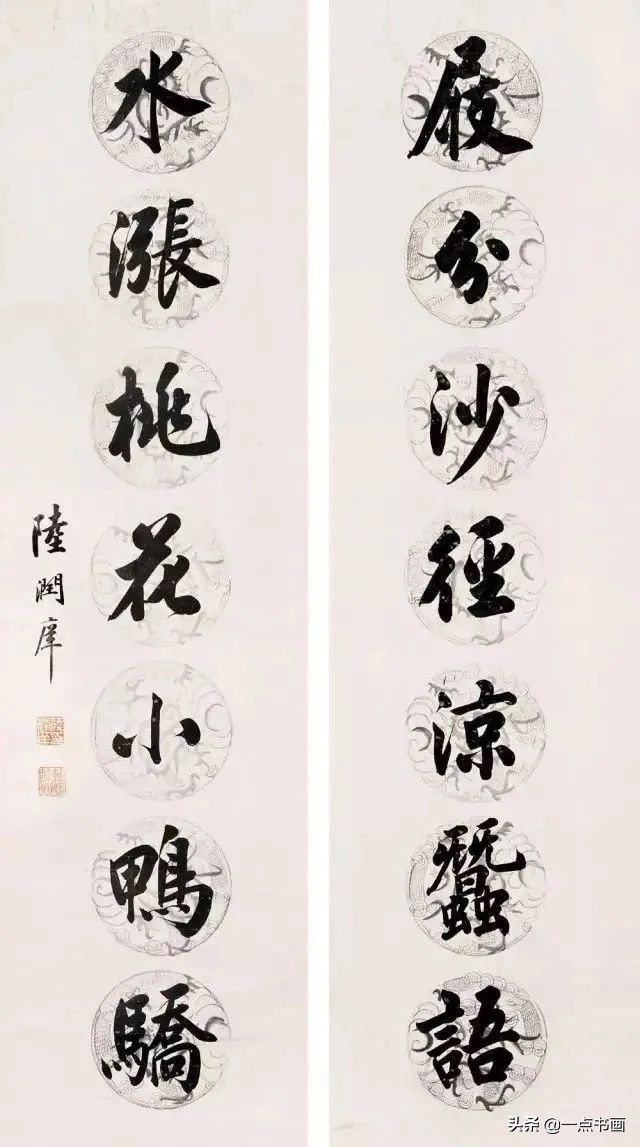 屐分沙徑涼蠶語
水漲桃花小鴨驕
陸潤庠
头条 @一点书画